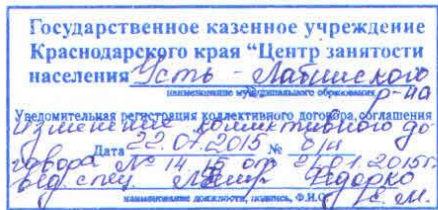 Государственное казенное учреждение
Краснодарского края “Центр занятости
населения Усть - Лабинского
наименование муниципального образования
р-на
Уведомительная регистрация коллективного договора, соглашения
Изменение коллективного до-
Дата 22.01.2015 № б/н
говора № 14 15 от 21.01.2015г.
вед спец. Федорко
наименование должности, подпись, Ф.И.О.
Е. М.